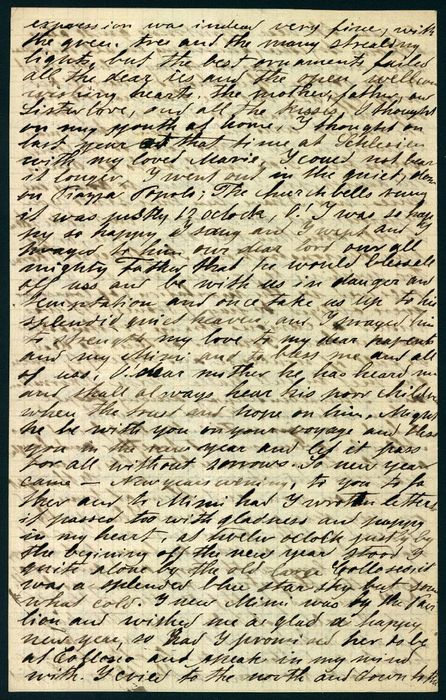 expression was indead very fine, with
the green tree and the many strealing
lights, but the best ornaments failed
all the dear ies and the open wellcom
wishing hearts the mother, father and
Sister love, and all the kisses I thought
on my youth at home, I thought on
last year at that time, at Schlesien
with my loved Marie, I coued not bear
it longer I went out in the quiet, down
on Piazza Popolo; The Church bells rang
it was justly 12 oclock, O! I was so hap
py so happy I sang and I went and I
prayed to him our dear Lord over all
mighty Father that he would bless all
off uss and be with us in danger and
Temptation and once take us up to his
splendid quiet heaven, and I prayed him
to strength my love to my dear parents
and my Mimi and to bless me and all
of uss; O! dear mother he has heard me
and shall always hear his poor children
when the trust and hope on him. Might
he be with you on your voyage and bless
you in the new year and let it pass
for all without sorrows. So new year
came – New years evening, to you to fa
ther and to Mimi had I wrotten letters
it passed too with gladness and happy
in my heart, at twelve oclock justly by
the begining off the new year stood I
quite alone by the old Colloseo it
was a splended blue star sky but some
what cold. I new Mimi was by the
lion and wished me a glad a happy
new year, so had I promised her to be
at Colloseo and speak in my mind
with. I cried to the north and down to the